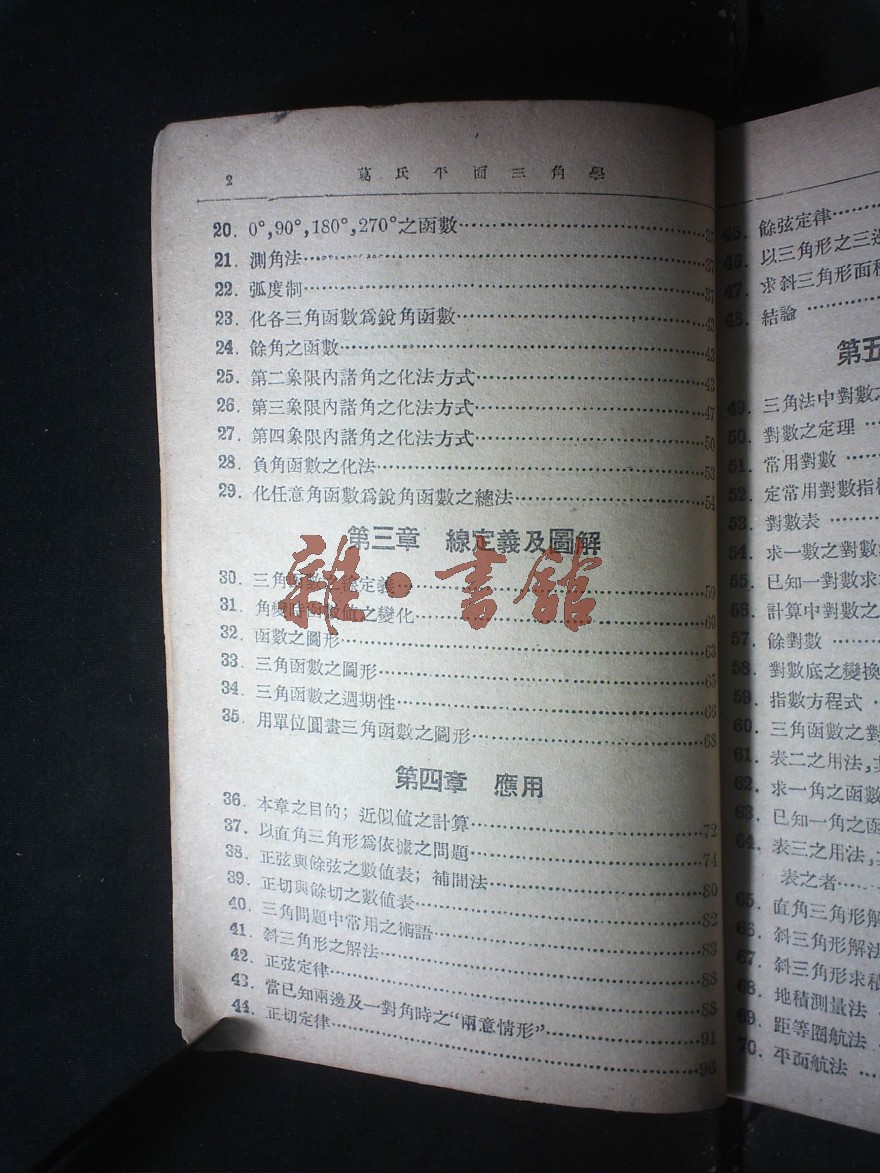 2 葛氏平面三角學
20. 0°,90°,180°,270°之函數
21. 測角法 37
22. 弧度制 37
23. 化各三角函數爲銳角函數 43
24. 餘角之函數 43
25. 第二象限內諸角之化法方式 43
26. 第三象限內諸角之化法方式 47
27. 第四象限內諸角之化法方式 50
28. 負角函數之化法 53
29. 化任意角函數爲銳角函數之總法 54
第三章 線定義及圖解
30. 三角函數之線定義 59
31. 角變時函數值之變化 60
32. 函數之圖形 63
33. 三角函數之圖形 65
34. 三角函數之週期性 66
35. 用單位圓畫三角函數之圖形 68
雜·書館
第四章 應用
36. 本章之目的；近似值之計算 72
37. 以直角三角形爲依據之問題 74
38. 正弦與餘弦之數值表；補間法 80
39. 正切與餘切之數值表 82
40. 三角問題中常用之術語 83
41. 斜三角形之解法 88
42. 正弦定律 88
43. 當已知兩邊及一對角時之“兩意情形” 91
44. 正切定律 96
45. 餘弦定律
46. 以三角形之三邊
47. 求斜三角形面積
48. 結論
第五
49. 三角法中對數之
50. 對數之定理
51. 常用對數
52. 定常用對數指標
53. 對數表
54. 求一數之對數
55. 已知一對數求
56. 計算中對數之
57. 餘對數
58. 對數底之變換
59. 指數方程式
60. 三角函數之對
61. 表二之用法,
62. 求一角之函數
63. 已知一角之函
64. 表三之用法,
表之者
65. 直角三角形解
66. 斜三角形解法
67. 斜三角形求積
68. 地積測量法
69. 距等圈航法
70. 平面航法